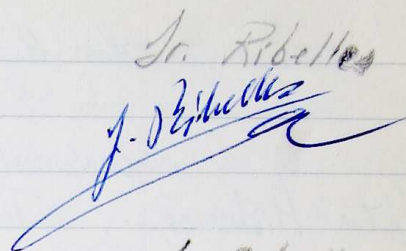 Sr. Ribelles
J. Ribelles